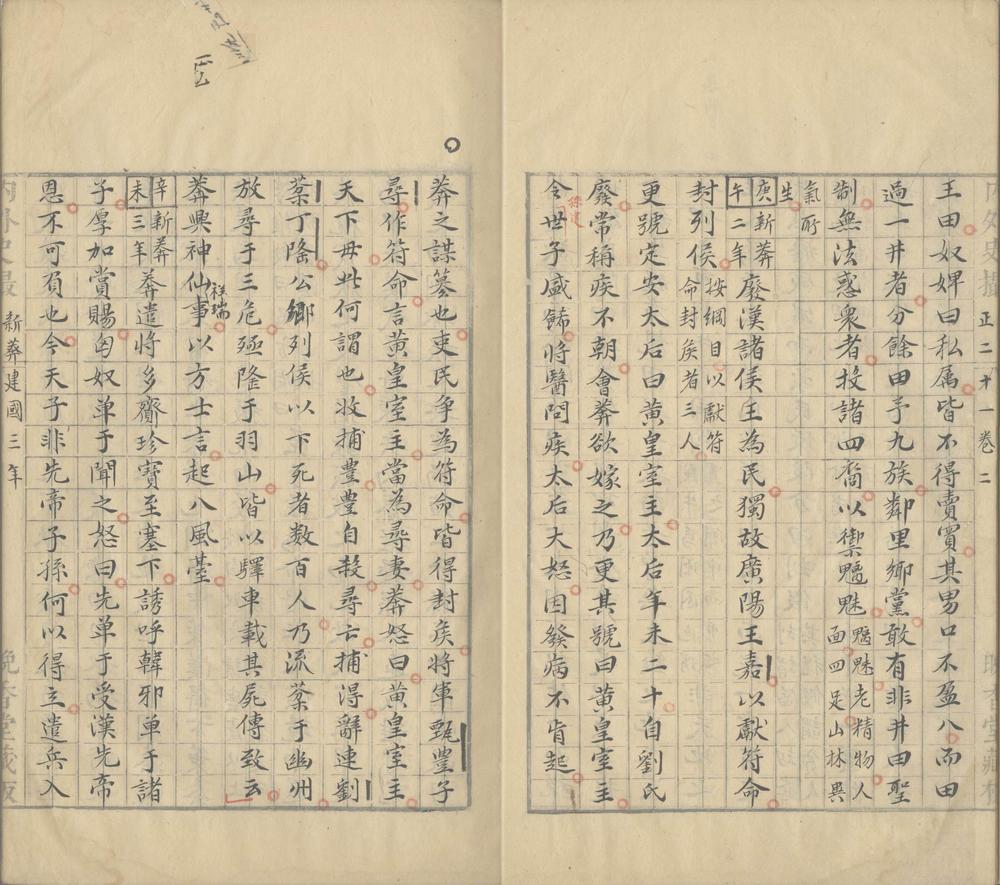 正二十一卷二
王田奴婢曰私属皆不得賣買其男口不盈八而田
過一井者分餘田予九族鄰里鄉黨敢有非井田聖
制無法惑衆者投諸四裔以禦魑魅魑魅老精物人面四足山林異
氣所生
庚午新莽二年廢漢諸侯王為民獨故廣陽王嘉以獻符命
封列侯按綱目以獻符命封矦者三人
更號定安太后曰黄皇室主太后年未二十自劉氏
廢常稱疾不朝會莽欲嫁之乃更其號曰黄皇室主
令世子盛餙將醫問疾太后大怒因發病不肯起
孫建
莽之謀篡也吏民争為符命皆得封矦將軍甄豐子
尋作符命言黄皇室主當為尋妻莽怒曰黄皇室主
天下毋此何謂也收捕豊豊自殺尋亡捕得辭連劉
棻丁隆公卿列侯以下死者数百人乃流棻于幽州
放尋于三危殛隆于羽山皆以驛車載其屍傳致云
莽興神仙事以方士言起八風臺
祥瑞
辛未新莽三年莽遣將多齎珍寶至塞下誘呼韓邪单于諸
子厚加賞賜匈奴单于聞之怒曰先单于受漢先帝
恩不可負也今天子非先帝子孫何以得立遣兵入
新莽建國三年